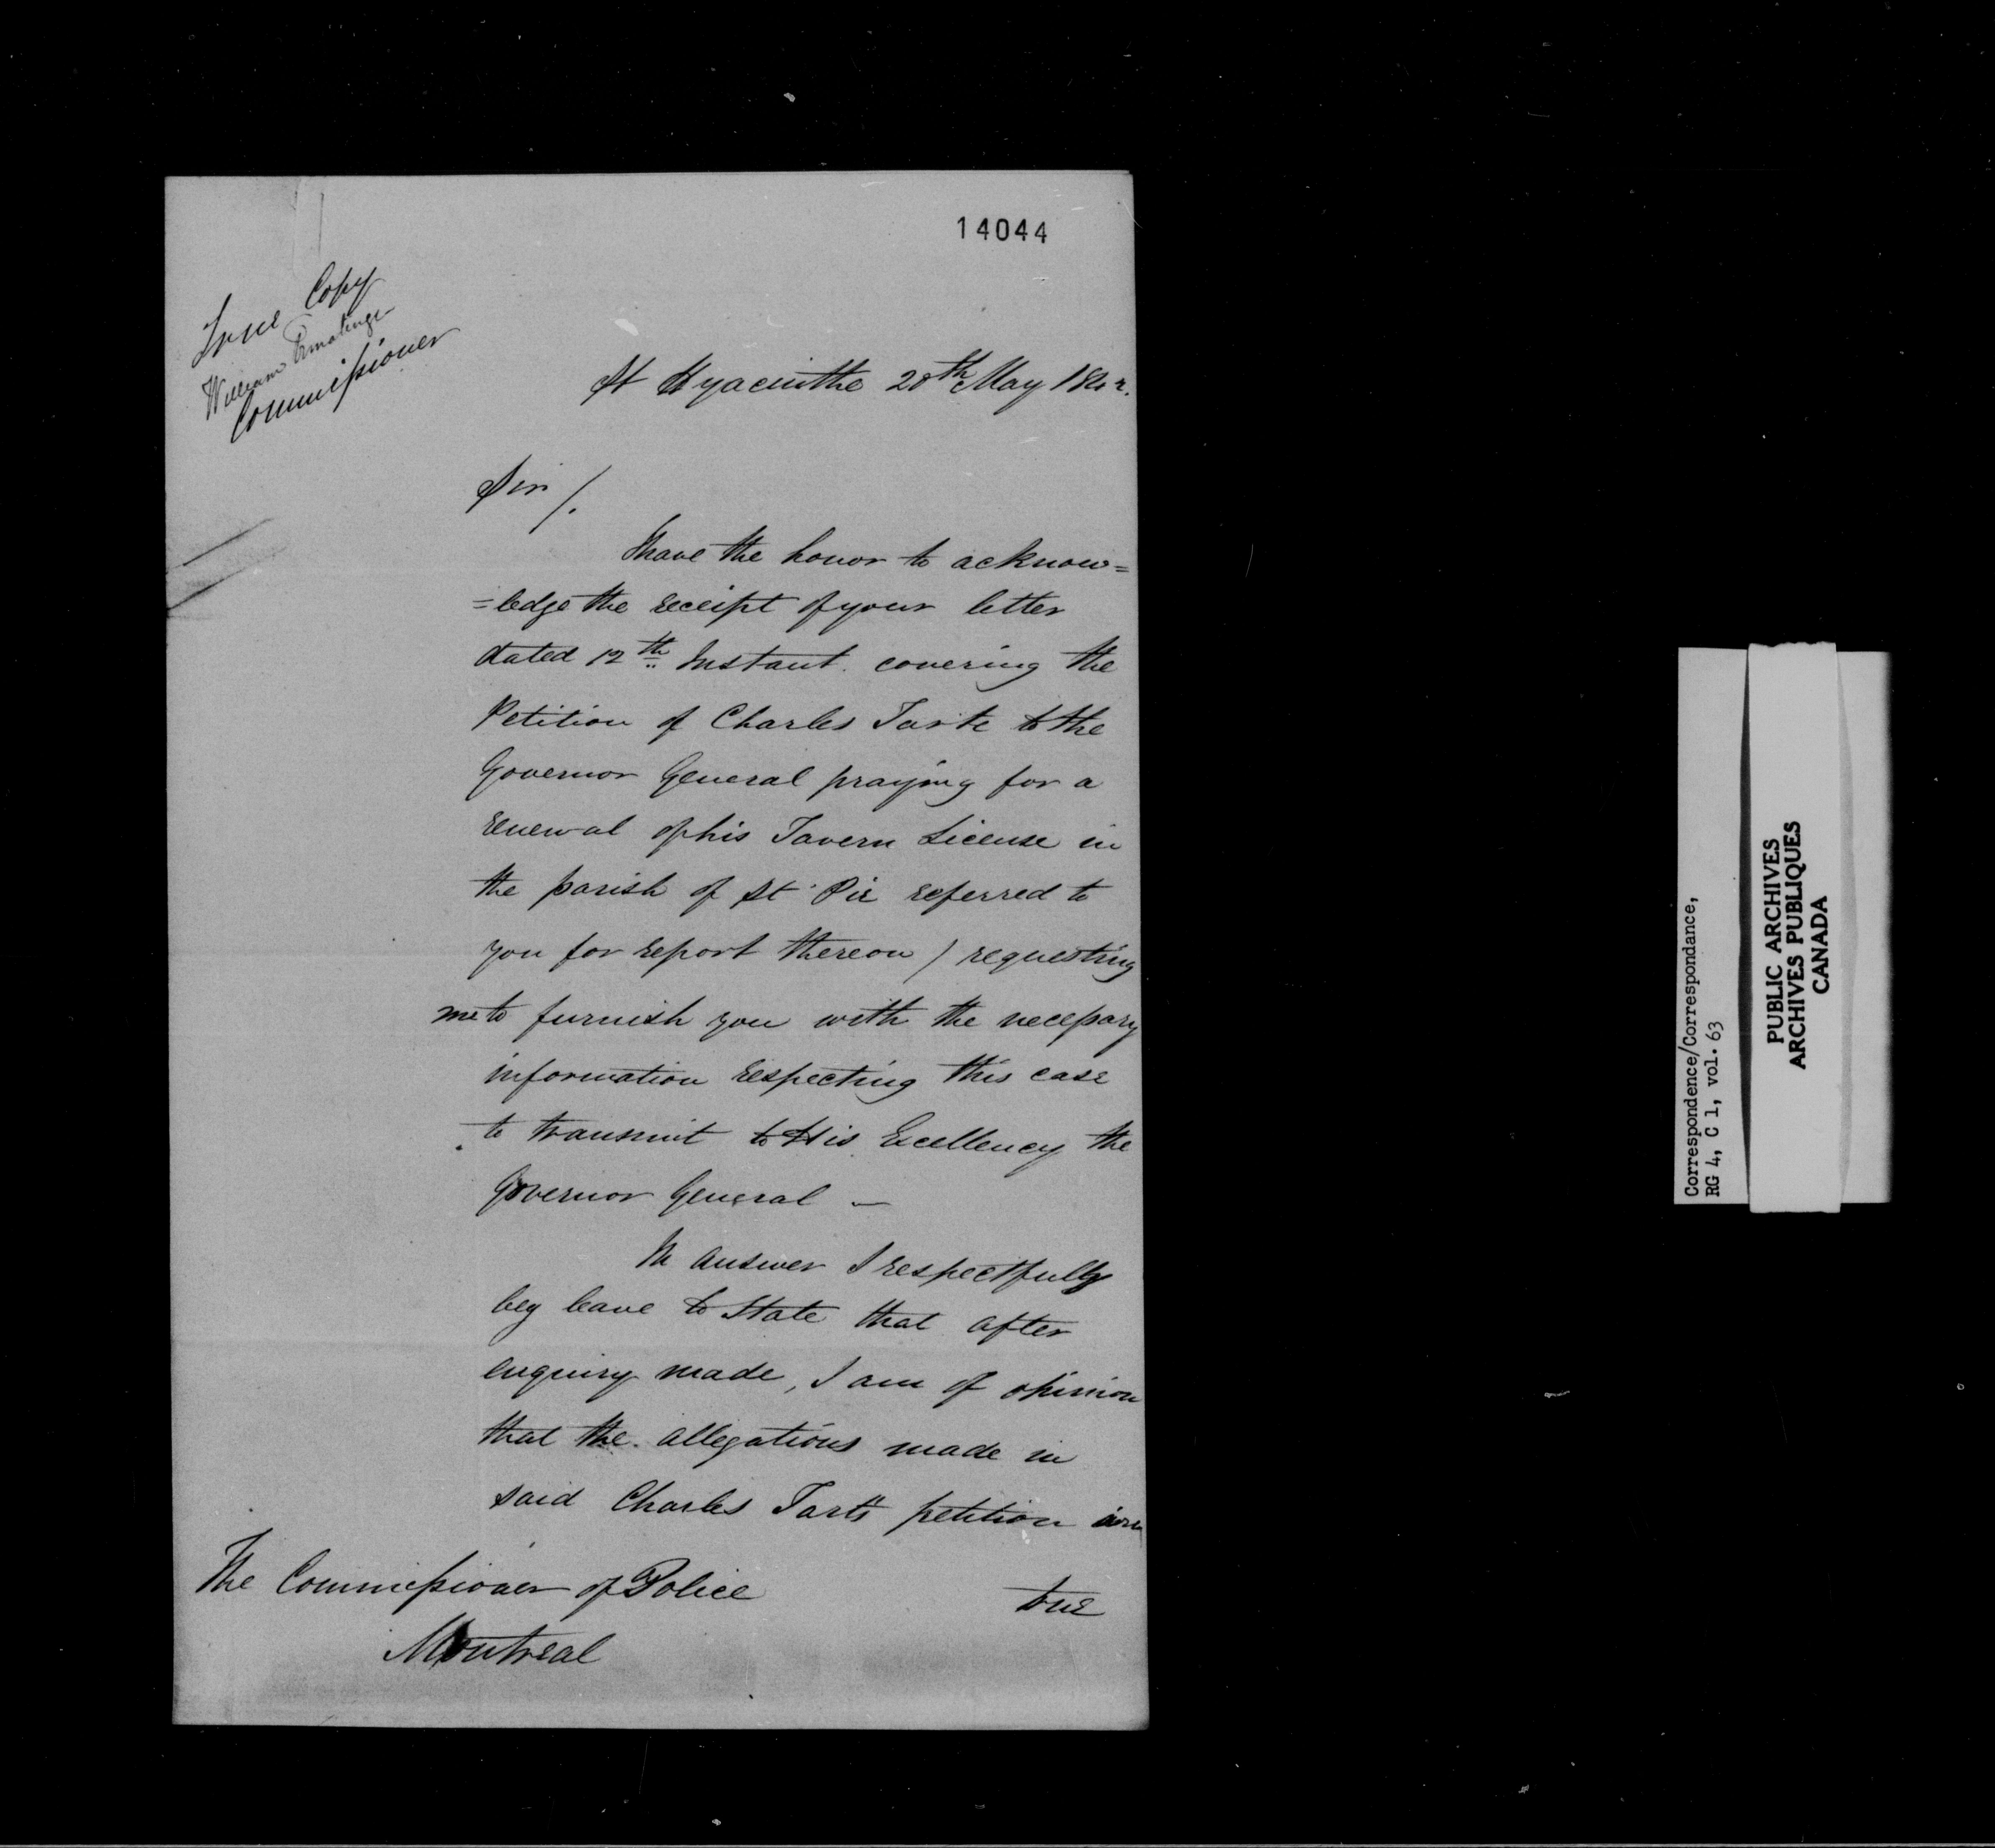 14044
True Copy
William Ermatinger
Commissioner
St Hyacinthe 20th May 1842.
Sir /.
I have the honor to acknow=
=ledge the receipt of your letter
dated 12th Instant. covering the
Petition of Charles Tarte to the
Governor General praying for a
renewal of his Tavern License in
the parish of St Pie referred to
you for report thereon / requesting
me to furnish you with the necessary
information respecting this case
to transmit to His Excellency the
Governor General —
In answer I respectfully
beg leave to State that after
enquiry made, I am of opinion
that the allegations made in
said Charles Tart's petition are
The Commissioner of Police
true
Montreal
Correspondence/Correspondance,
RG 4, C 1, vol. 63
PUBLIC ARCHIVES
ARCHIVES PUBLIQUES
CANADA